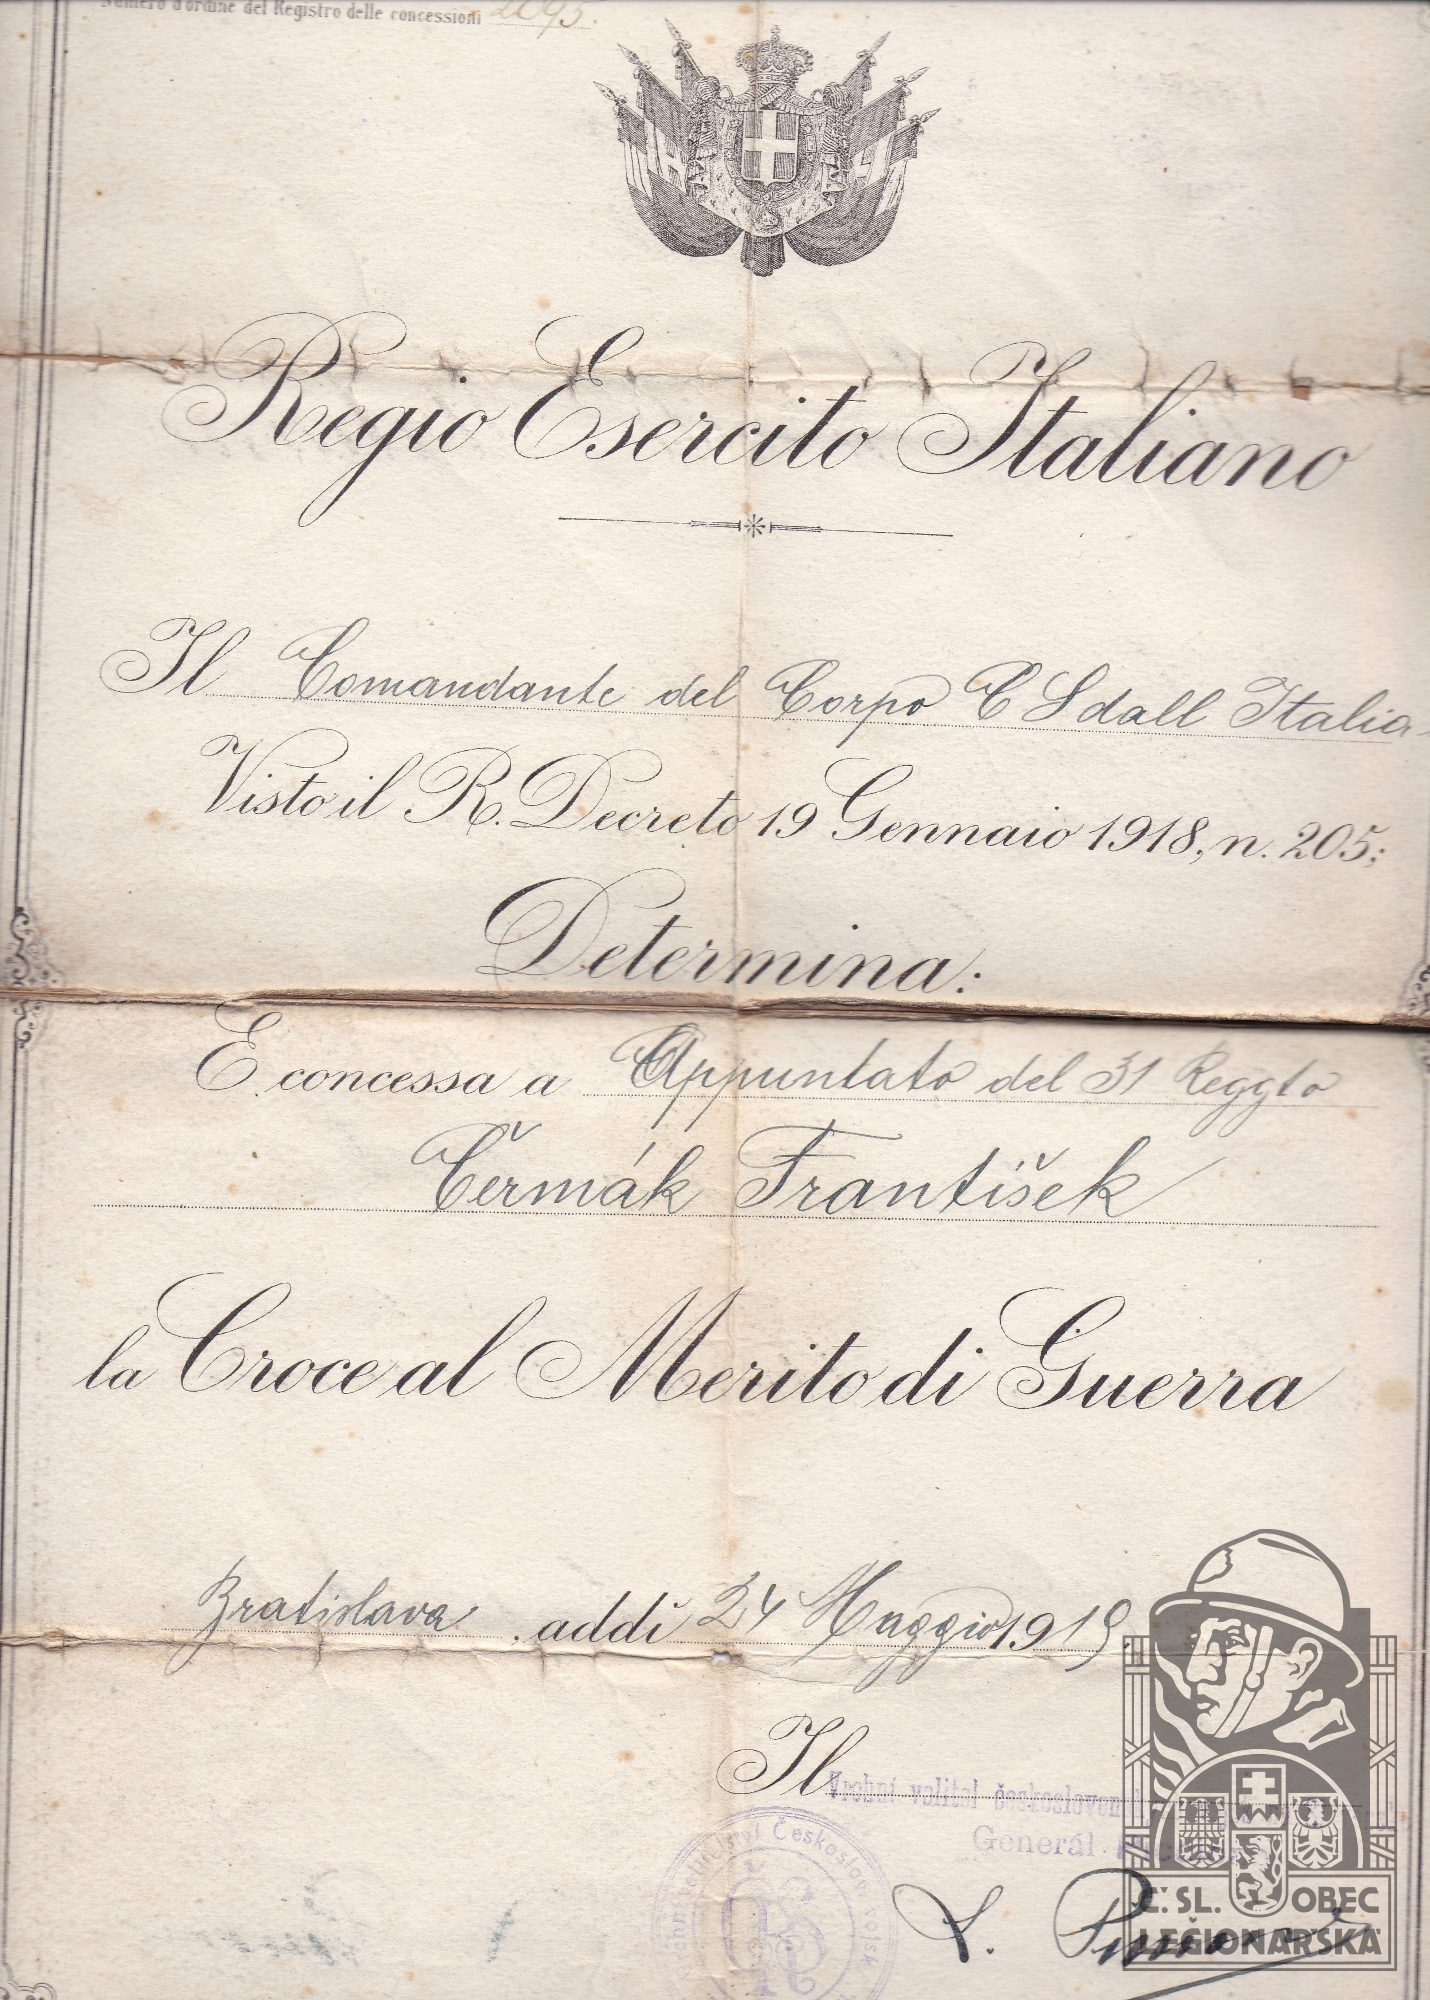 Numero d'ordine del Registro delle concessioni 2095.
Regio Esercito Italiano
Il Comandante del Corpo C S dall Italia
Visto il R. Decreto 19 Gennaio 1918, n. 205;
Determina:
E concessa a Appuntato del 31 Reggto
Čermák František
la Croce al Merito di Guerra
Bratislava, addì 24 Maggio 1919.
Il
Vrchní velitel
Generál
velitelství Českoslov. vojsk
Č. SL. OBEC
LEGIONÁŘSKÁ